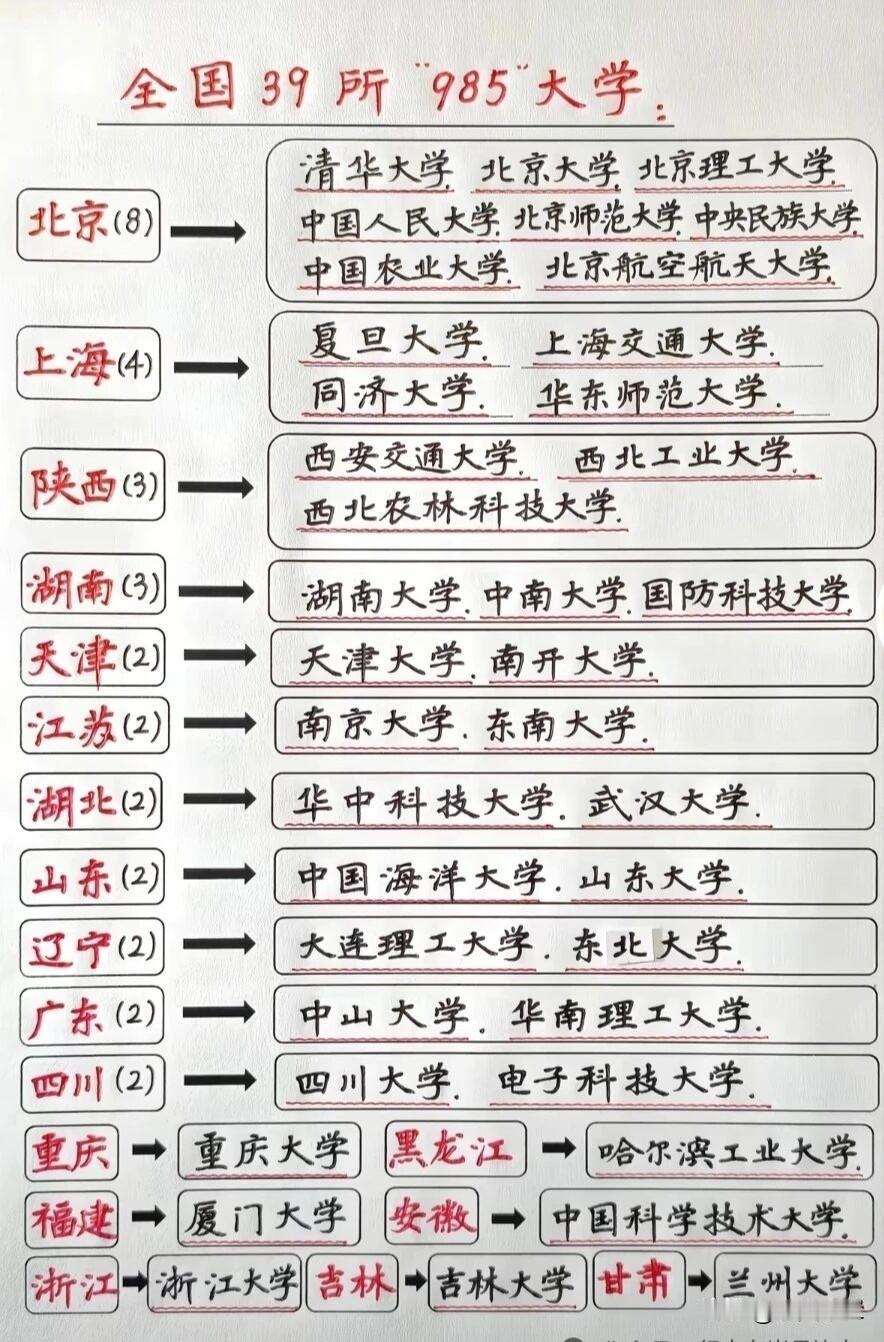 全国39所"985"大学:
北京(8)
清华大学. 北京大学. 北京理工大学.
中国人民大学. 北京师范大学. 中央民族大学.
中国农业大学. 北京航空航天大学.
上海(4)
复旦大学. 上海交通大学.
同济大学. 华东师范大学.
陕西(3)
西安交通大学. 西北工业大学.
西北农林科技大学.
湖南(3) 湖南大学. 中南大学. 国防科技大学.
天津(2) 天津大学. 南开大学.
江苏(2) 南京大学. 东南大学.
湖北(2) 华中科技大学. 武汉大学.
山东(2) 中国海洋大学. 山东大学.
辽宁(2) 大连理工大学. 东北大学.
广东(2) 中山大学. 华南理工大学.
四川(2) 四川大学. 电子科技大学.
重庆 重庆大学 黑龙江 哈尔滨工业大学.
福建 厦门大学 安徽 中国科学技术大学.
浙江 浙江大学 吉林 吉林大学 甘肃 兰州大学